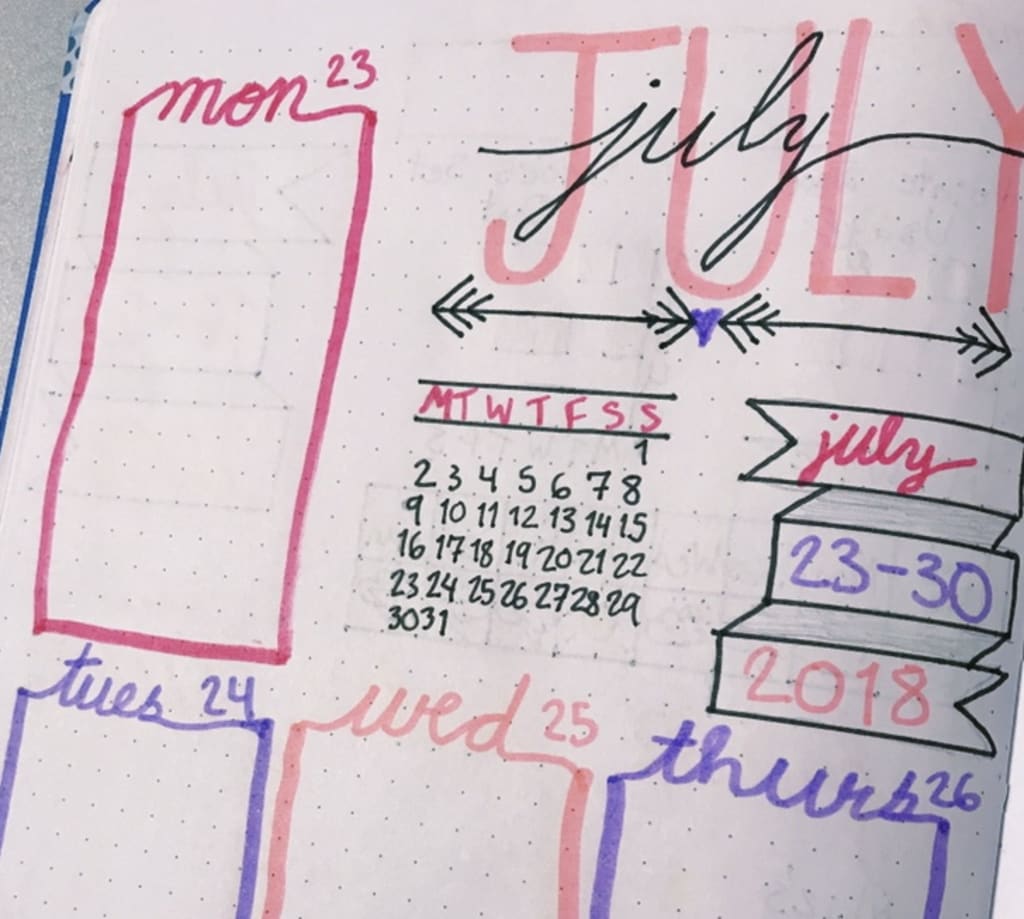 mon 23
JULY
july
M T W T F S S
1
2 3 4 5 6 7 8
9 10 11 12 13 14 15
16 17 18 19 20 21 22
23 24 25 26 27 28 29
30 31
july
23-30
2018
tues 24
wed 25
thurs 26